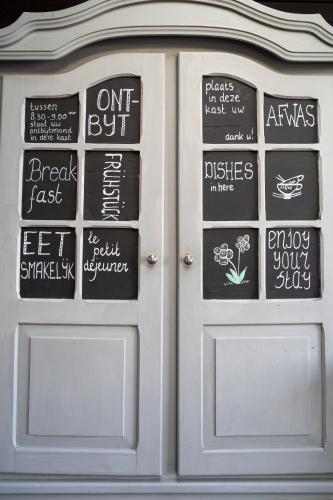 tussen
8.30-9.00 uur
staat uw
ontbijtmand
in deze kast
ONT-
BYT
Break
fast
FRÜHSTÜCK
EET
SMAKELIJK
le
petit
déjeuner
plaats
in deze
kast uw
dank u!
AFWAS
DISHES
in here
ENJOY
YOUR
STAY